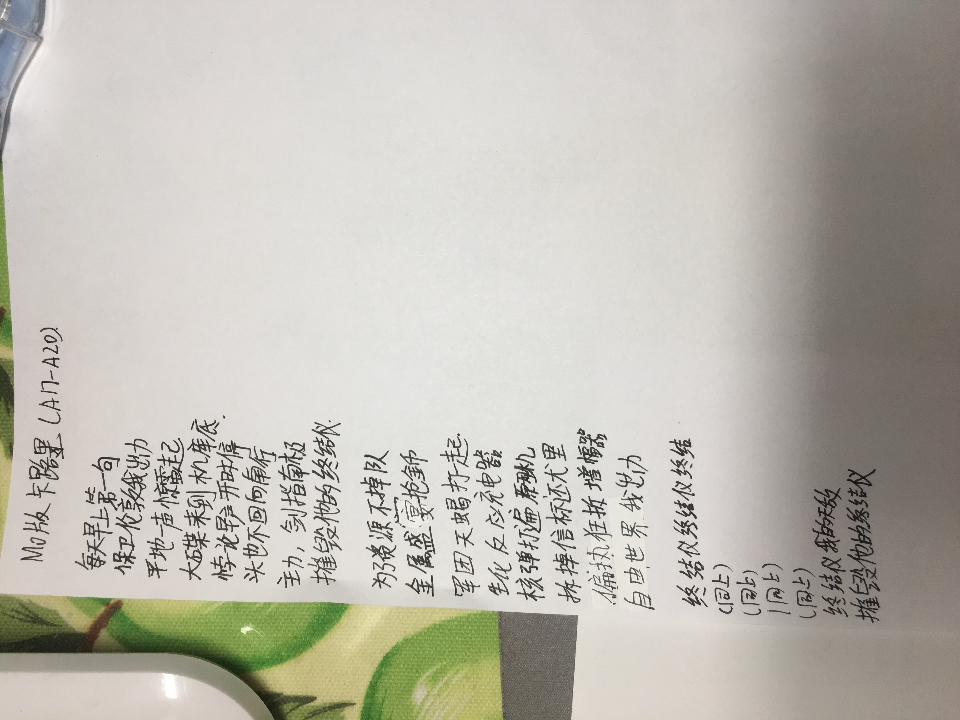 Mo版卡路里 (A17-A20)
每天早上第一句
保卫伦敦我出力
平地一声惊雷起
大石碟来到机库底.
悖论早声开时停
头也不回向前行
主力,剑指南极
摧毁他的终结仪
为资源不掉队
金属盛宴抢钞币
军团天蝎打起.
生化反应充电器
核弹打遍
拆掉信标还尤里
偏执狂拆增幅器
自由世界我出力
终结仪终结仪终结
(同上)
(同上)
(同上)
(同上)
终结仪我的天敌
摧毁他的终结仪